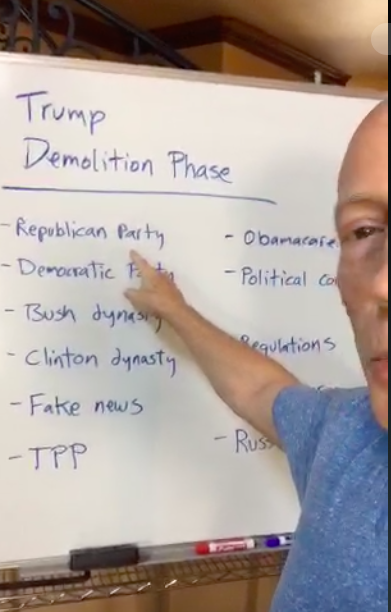 Trump
Demolition Phase
- Republican Party
- Democratic Party
- Bush dynasty
- Clinton dynasty
- Fake news
- TPP
- Obamacare
- Political
Regulations